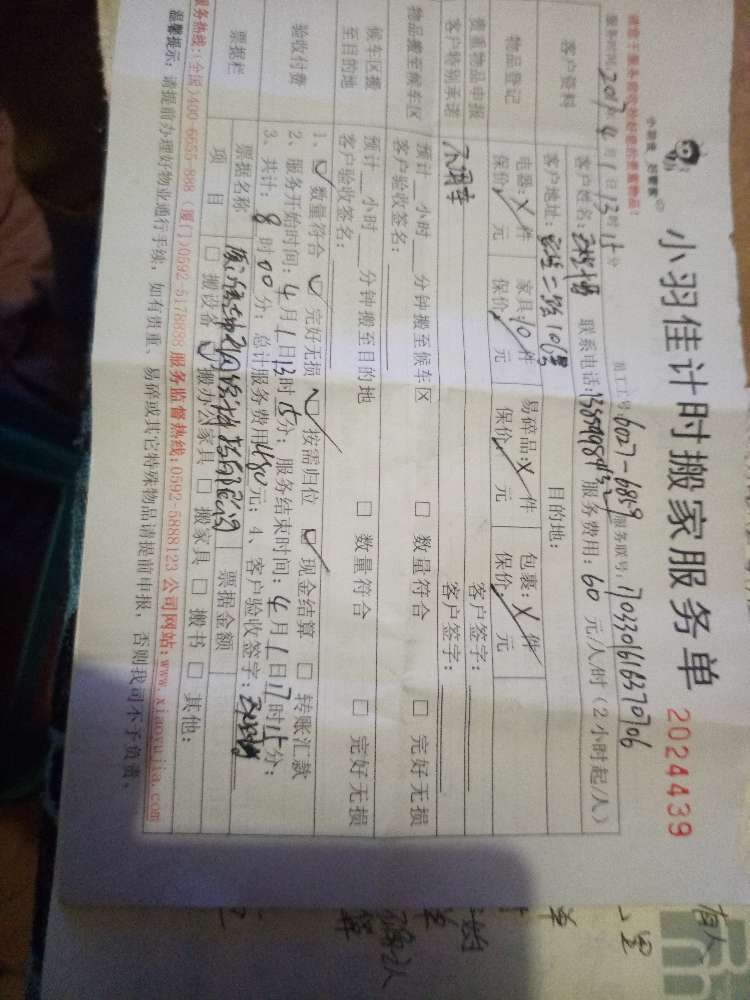 小羽佳计时搬家服务单 2024439
小羽佳 好管家
请您于服务前收拾好您的贵重物品!
服务时间:2017年4月1日13时15分 员工工号:6027-6859 服务联号:170330161637070６
客户资料
客户姓名: 联系电话: 服务费用:60元/人/时(2小时起/人)
客户地址:二路106号 目的地:
物品登记
电器:X件 家具:10件 易碎品:X件 包裹:X件
保价 元 保价 元 保价 元 保价 元
贵重物品申报 客户签字:
客户特别承诺 不用幸 客户签字:
物品搬至候车区
预计 小时 分钟搬至候车区 □ 数量符合 □ 完好无损
客户验收签名:
候车区搬至目的地
预计 小时 分钟搬至目的地 □ 数量符合 □ 完好无损
客户验收签名:
验收付费
1、☑ 数量符合 ☑ 完好无损 ☑ 按需归位 ☑ 现金结算 □ 转账汇款
2、服务开始时间:4月1日13时15分;服务结束时间:4月1日17时15分;
3、共计:8时00分;总计服务费用480元;4、客户验收签字:
票据栏
票据名称 票据金额
项目 □ 搬设备 ☑ 搬办公家具 □ 搬家具 □ 搬书 □ 其他:
服务热线:(全国)400-6655-888 (厦门)0592-5178888 服务监督热线:0592-5888123 公司网站:www.xiaoyujia.com
温馨提示:请提前办理好物业通行手续,如有贵重、易碎或其它特殊物品请提前申报,否则我司不予负责。
有人
确认